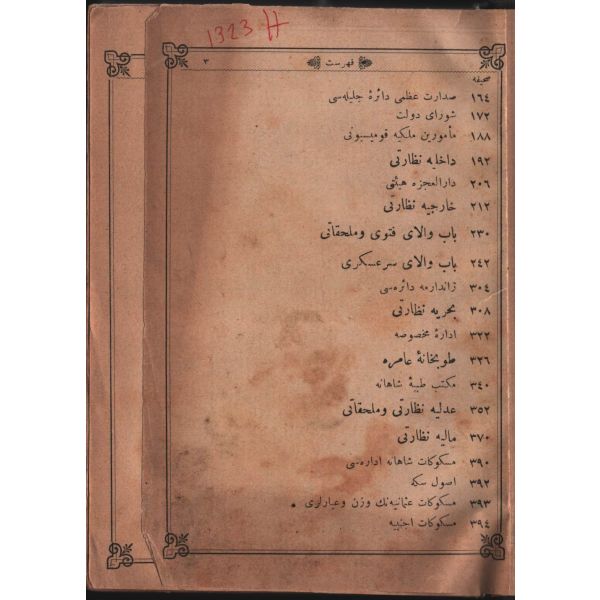 1323 H
٣ فهرست
صحيفه
١٦٤ صدارت عظمى دائرۀ جليله‌سى
١٧٢ شوراى دولت
١٨٨ مأمورين ملكيه قوميسيونى
١٩٢ داخليه نظارتى
٢٠٦ دارالعجزه هيئتى
٢١٢ خارجيه نظارتى
٢٣٠ باب والاى فتوى وملحقاتى
٢٤٢ باب والاى سرعسكرى
٣٠٤ ژاندارمه دائره‌سى
٣٠٨ بحريه نظارتى
٣٢٢ ادارۀ مخصوصه
٣٢٦ طوبخانۀ عامره
٣٤٠ مكتب طبيۀ شاهانه
٣٥٢ عدليه نظارتى وملحقاتى
٣٧٠ ماليه نظارتى
٣٩٠ مسكوكات شاهانه اداره‌سى
٣٩٢ اصول سكه
٣٩٣ مسكوكات عثمانيه‌نك وزن وعيارلرى
٣٩٤ مسكوكات اجنبيه